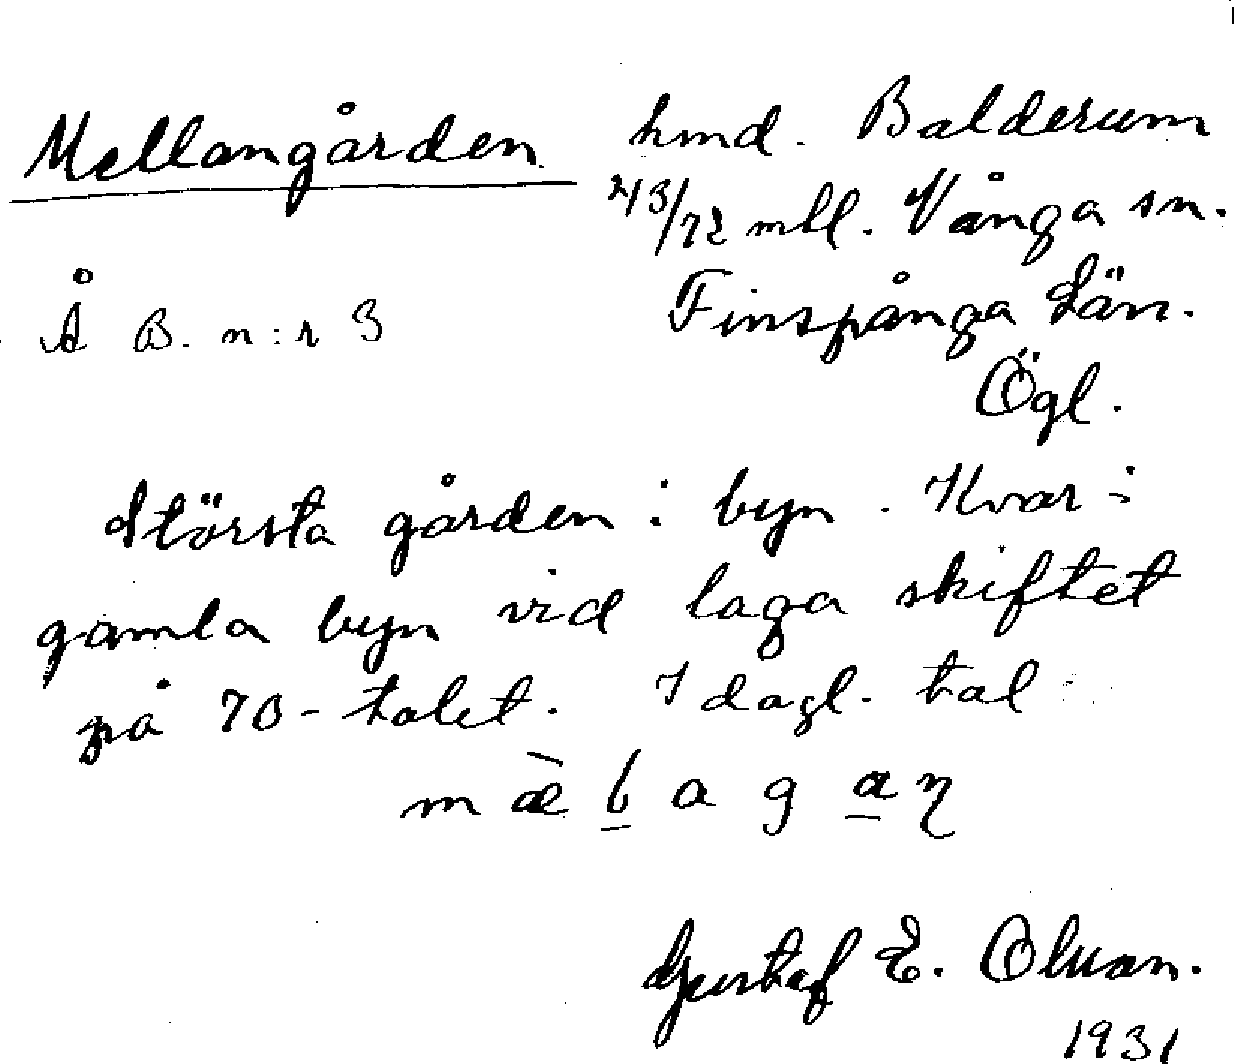 Mellangården hmd. Balderum
43/72 mtl. Vånga sn.
Å B. n:r 3 Finspånga län.
Ögl.
Största gården i byn. Kvar i
gamla byn vid laga skiftet
på 70-talet. I dagl. tal:
gustaf E. Olsson.
1931